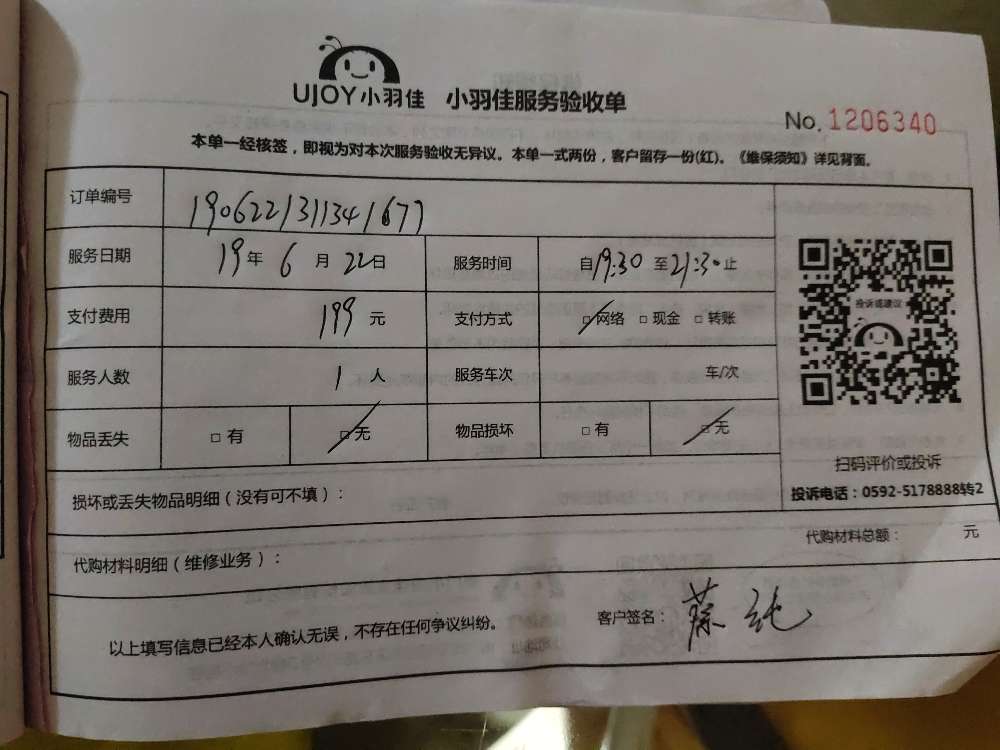 UJOY小羽佳 小羽佳服务验收单
No. 1206340
本单一经核签，即视为对本次服务验收无异议。本单一式两份，客户留存一份(红)。《维保须知》详见背面。
订单编号 190622131134167７
服务日期 19年 6 月 22日 服务时间 自19:30 至21:30止
支付费用 199 元 支付方式 □网络 □现金 □转账
投诉或建议
服务人数 1 人 服务车次 车/次
物品丢失 □有 □无 物品损坏 □有 □无
扫码评价或投诉
投诉电话：0592-5178888转2
损坏或丢失物品明细（没有可不填）：
代购材料明细（维修业务）： 代购材料总额： 元
以上填写信息已经本人确认无误，不存在任何争议纠纷。 客户签名：